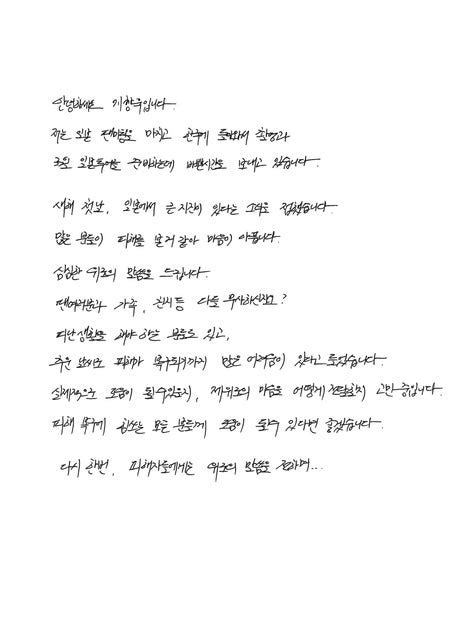 안녕하세요 지창욱입니다.
저는 일본 팬미팅을 마치고 한국에 돌아와서 촬영과
일본투어를 준비하는데 바쁜시간을 보내고 있습니다.
새해 첫날, 일본에서 큰 지진이 있다는 소식을 접했습니다.
많은 분들이 피해를 본거 같아 마음이 아픕니다.
심심한 위로의 말씀을 드립니다.
팬여러분과 가족, 친지등 다들 무사하신지요?
피난생활을 해야 하는 분들도 있고,
추운 날씨로 피해가 복구되기까지 많은 어려움이 있다고 들었습니다.
실제적으로 도움이 될수있을지, 제 위로의 마음을 어떻게 전달할지 고민중입니다.
피해 복구에 힘쓰는 모든 분들께 도움이 될수 있다면 좋겠습니다.
다시 한번, 피해자들에게는 위로의 말씀을 전하며...